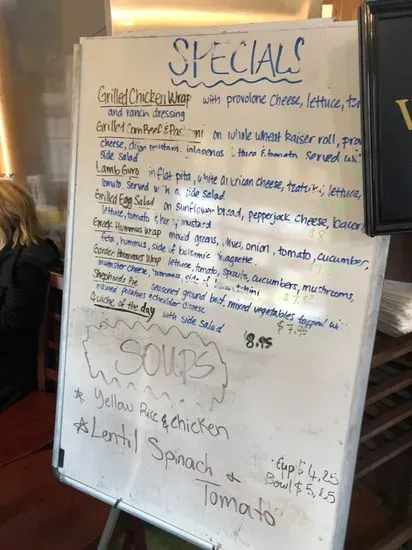 SPECIALS
Grilled Chicken Wrap with provolone cheese, lettuce,
and ranch dressing
Grilled Corn Beef & Pastrami on whole wheat kaiser roll,
cheese, dijon mustard, jalapenos lettuce & tomato served
side salad
Lamb Gyro in flat pita, white american cheese, tzatziki, lettuce,
tomato, served with a side salad
Grilled Egg Salad on sunflower bread, pepperjack cheese, bacon,
lettuce, tomato & honey mustard
Greek Hummus Wrap mixed greens, olives, onion, tomato, cucumber,
feta, hummus, side of balsamic vinaigrette
Garden Hummus Wrap lettuce, tomato, sprouts, cucumbers, mushrooms,
muenster cheese, hummus, side of
Shepherds Pie seasoned ground beef, mixed vegetables topped
mashed potatoes & cheddar cheese $7.95
Quiche of the day with side salad 8.95
SOUPS
Yellow Rice & chicken
Lentil Spinach &
Tomato
Cup $4.25
Bowl $5.25